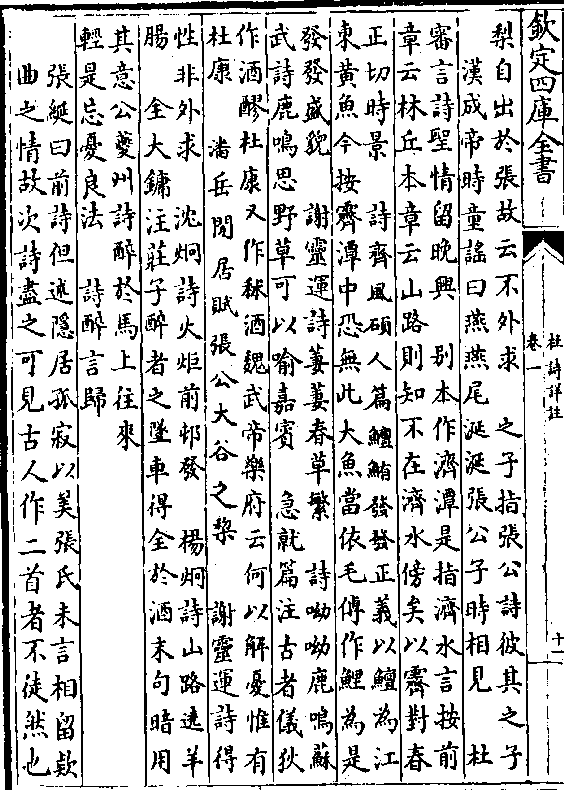 欽定四庫全書
杜詩詳註
卷一
十一
梨自出於張故云不外求 之子指張公詩彼其之子
漢成帝時童謠曰燕燕尾涎涎張公子時相見 杜
審言詩聖情留晚興 别本作濟潭是指濟水言按前
章云林丘本章云山路則知不在濟水傍矣以霽對春
正切時景 詩齊風碩人篇鱣鮪發發正義以鱣為江
東黄魚今按霽潭中恐無此大魚當依毛傳作鯉為是
發發盛貌 謝靈運詩萋萋春草繁 詩呦呦鹿鳴蘇
武詩鹿鳴思野草可以喻嘉賓 急就篇注古者儀狄
作酒醪杜康又作秫酒魏武帝樂府云何以解憂惟有
杜康 潘岳閒居賦張公大谷之棃 謝靈運詩得
性非外求 沈烱詩火炬前邨發 楊烱詩山路遶羊
腸 全大鏞注莊子醉者之墜車得全於酒末句暗用
其意公夔州詩醉於馬上往來
輕是忘憂良法 詩醉言歸
張綖曰前詩但述隱居孤寂以美張氏未言相留款
曲之情故次詩盡之可見古人作二首者不徒然也